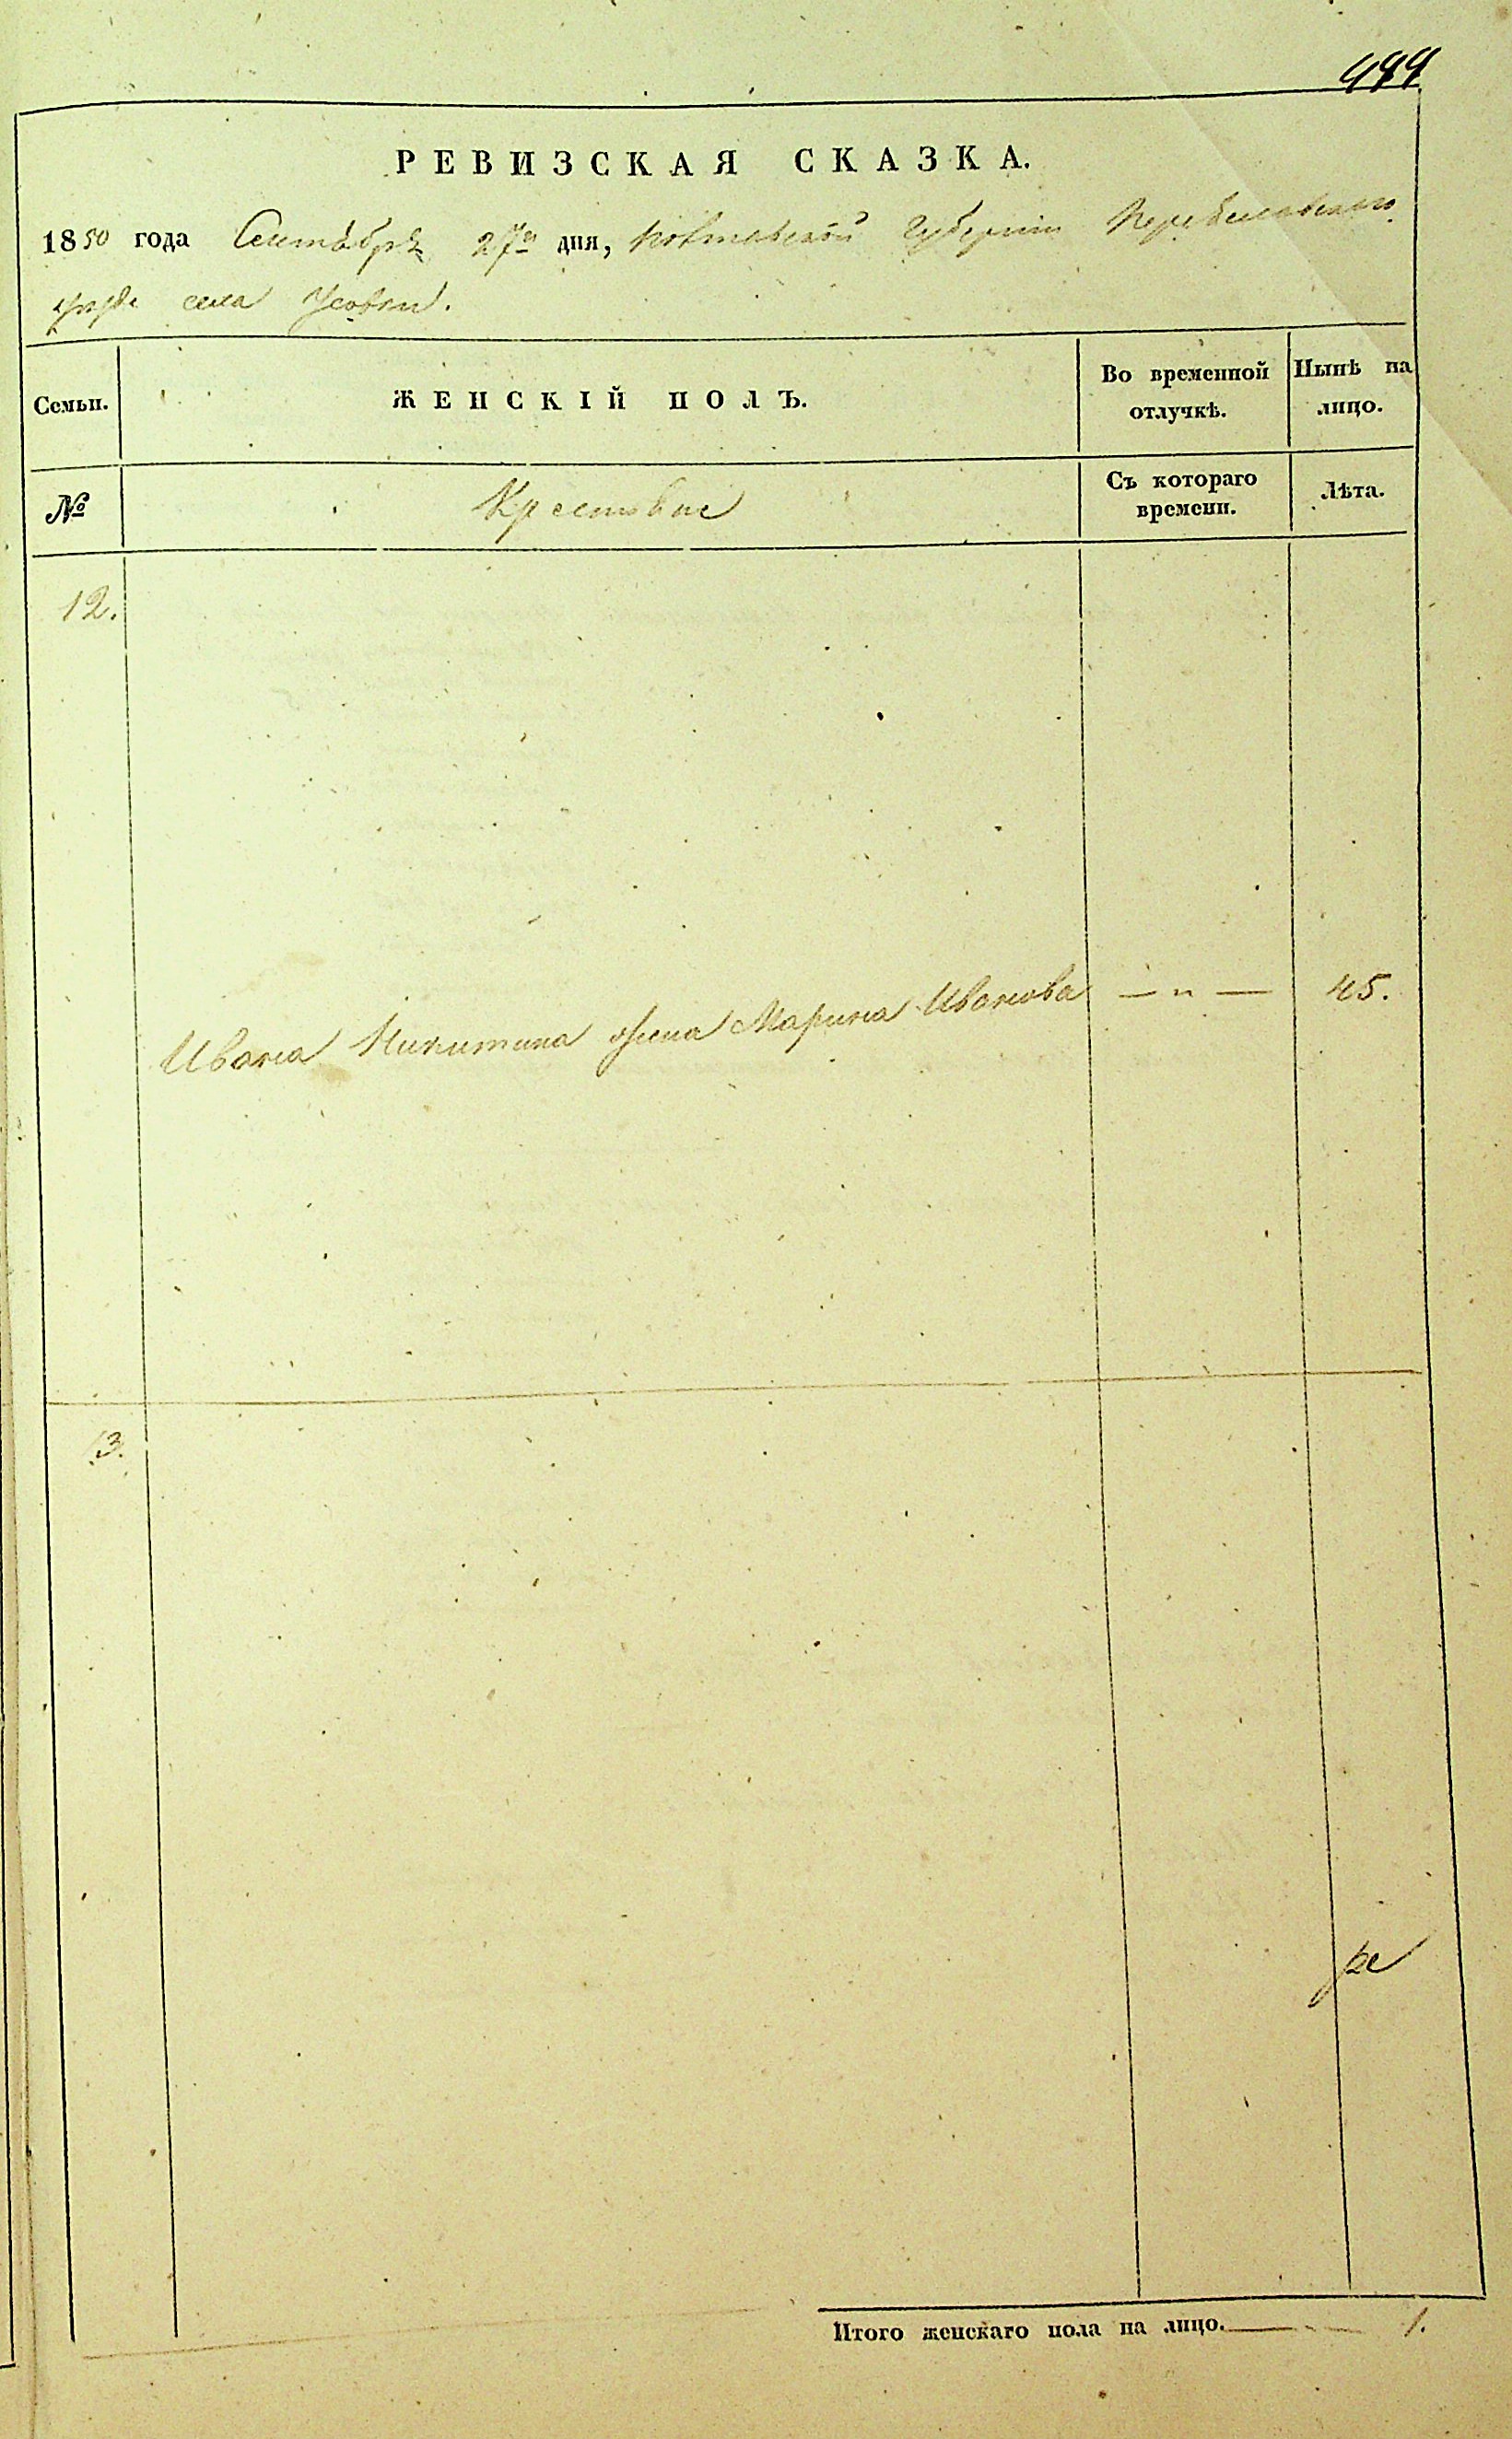 РЕВИЗСКАЯ СКАЗКА.
1850 года Сентября 27го дня, Полтавской Губернии Переяславскаго
уезда села Усовки.
Семьи.
ЖЕНСКІЙ ПОЛЪ.
Во временной отлучкѣ.
Нынѣ на лицо.
№
Крестьяне
Съ котораго времени.
Лѣта.
12.
Ивана Никитина жена Марина Иванова — „ — 45.
13.
Итого женскаго пола на лицо. — „ — 1.